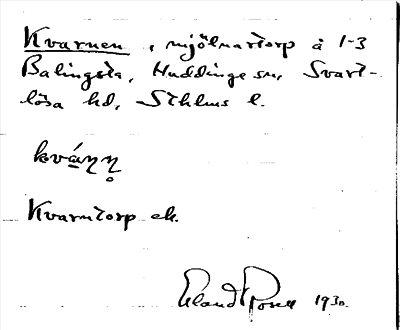 Kvarnen, mjölnartorp å 1-3
Balingsta, Huddinge sn, Svart-
lösa hd, Sthlms l.
kváṇṇ̥
Kvarntorp ek.
Erland Rosell 1930.